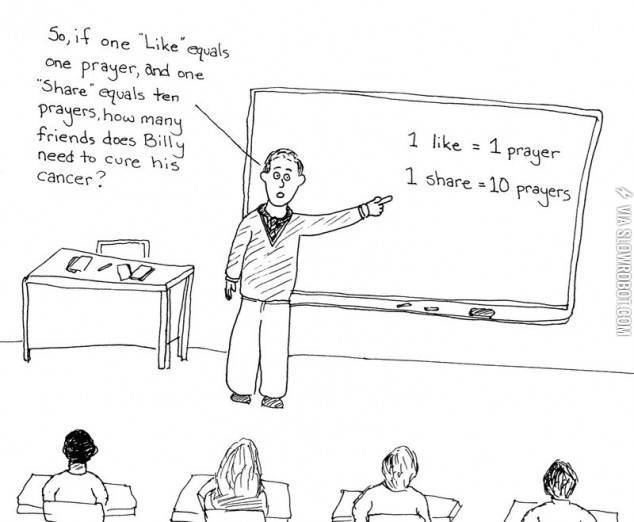 So, if one "Like" equals
one prayer, and one
"Share" equals ten
prayers, how many
friends does Billy
need to cure his
cancer?
1 like = 1 prayer
1 share = 10 prayers
VIA SLOWROBOT.COM